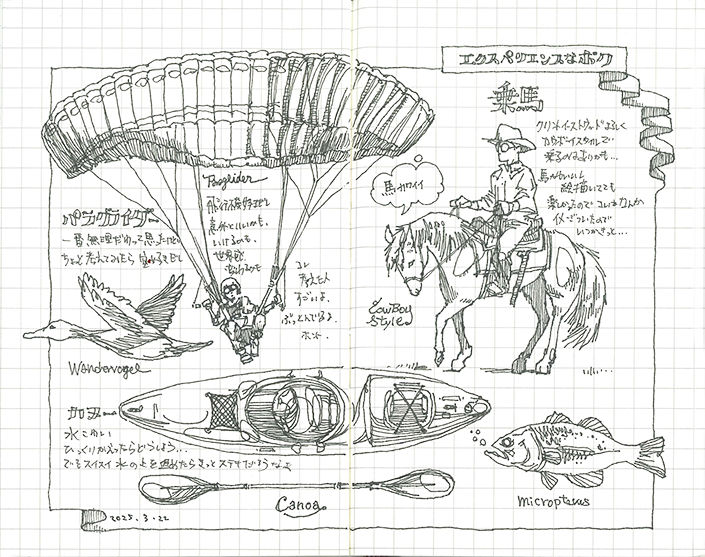 エクスペリエンスなボク
乗馬
クリント・イーストウッドよろしく
カウボーイスタイルで
乗るのはありかも…
馬かわいいし
絵を描いてても
楽しかったので コレはなんか
いつかきっと…
馬カワイイ
CowBoy
Style
Paraglider
パラグライダー
一番無理だわって思ったけど
ちょっと考えてみたら
飛行機好きだし
意外といいかも、
いけるかも、
世界観
かわるかも
コレ
考えた人
すごいよ、
ぶっとんでるよ、
ホント.
Wandervogel
カヌー
水こわい
ひっくりかえったらどうしよう…
でもスイスイ 水の上を 進れたらきっと ステキだろうなぁ
Canoa
micropterus
2025.3.22